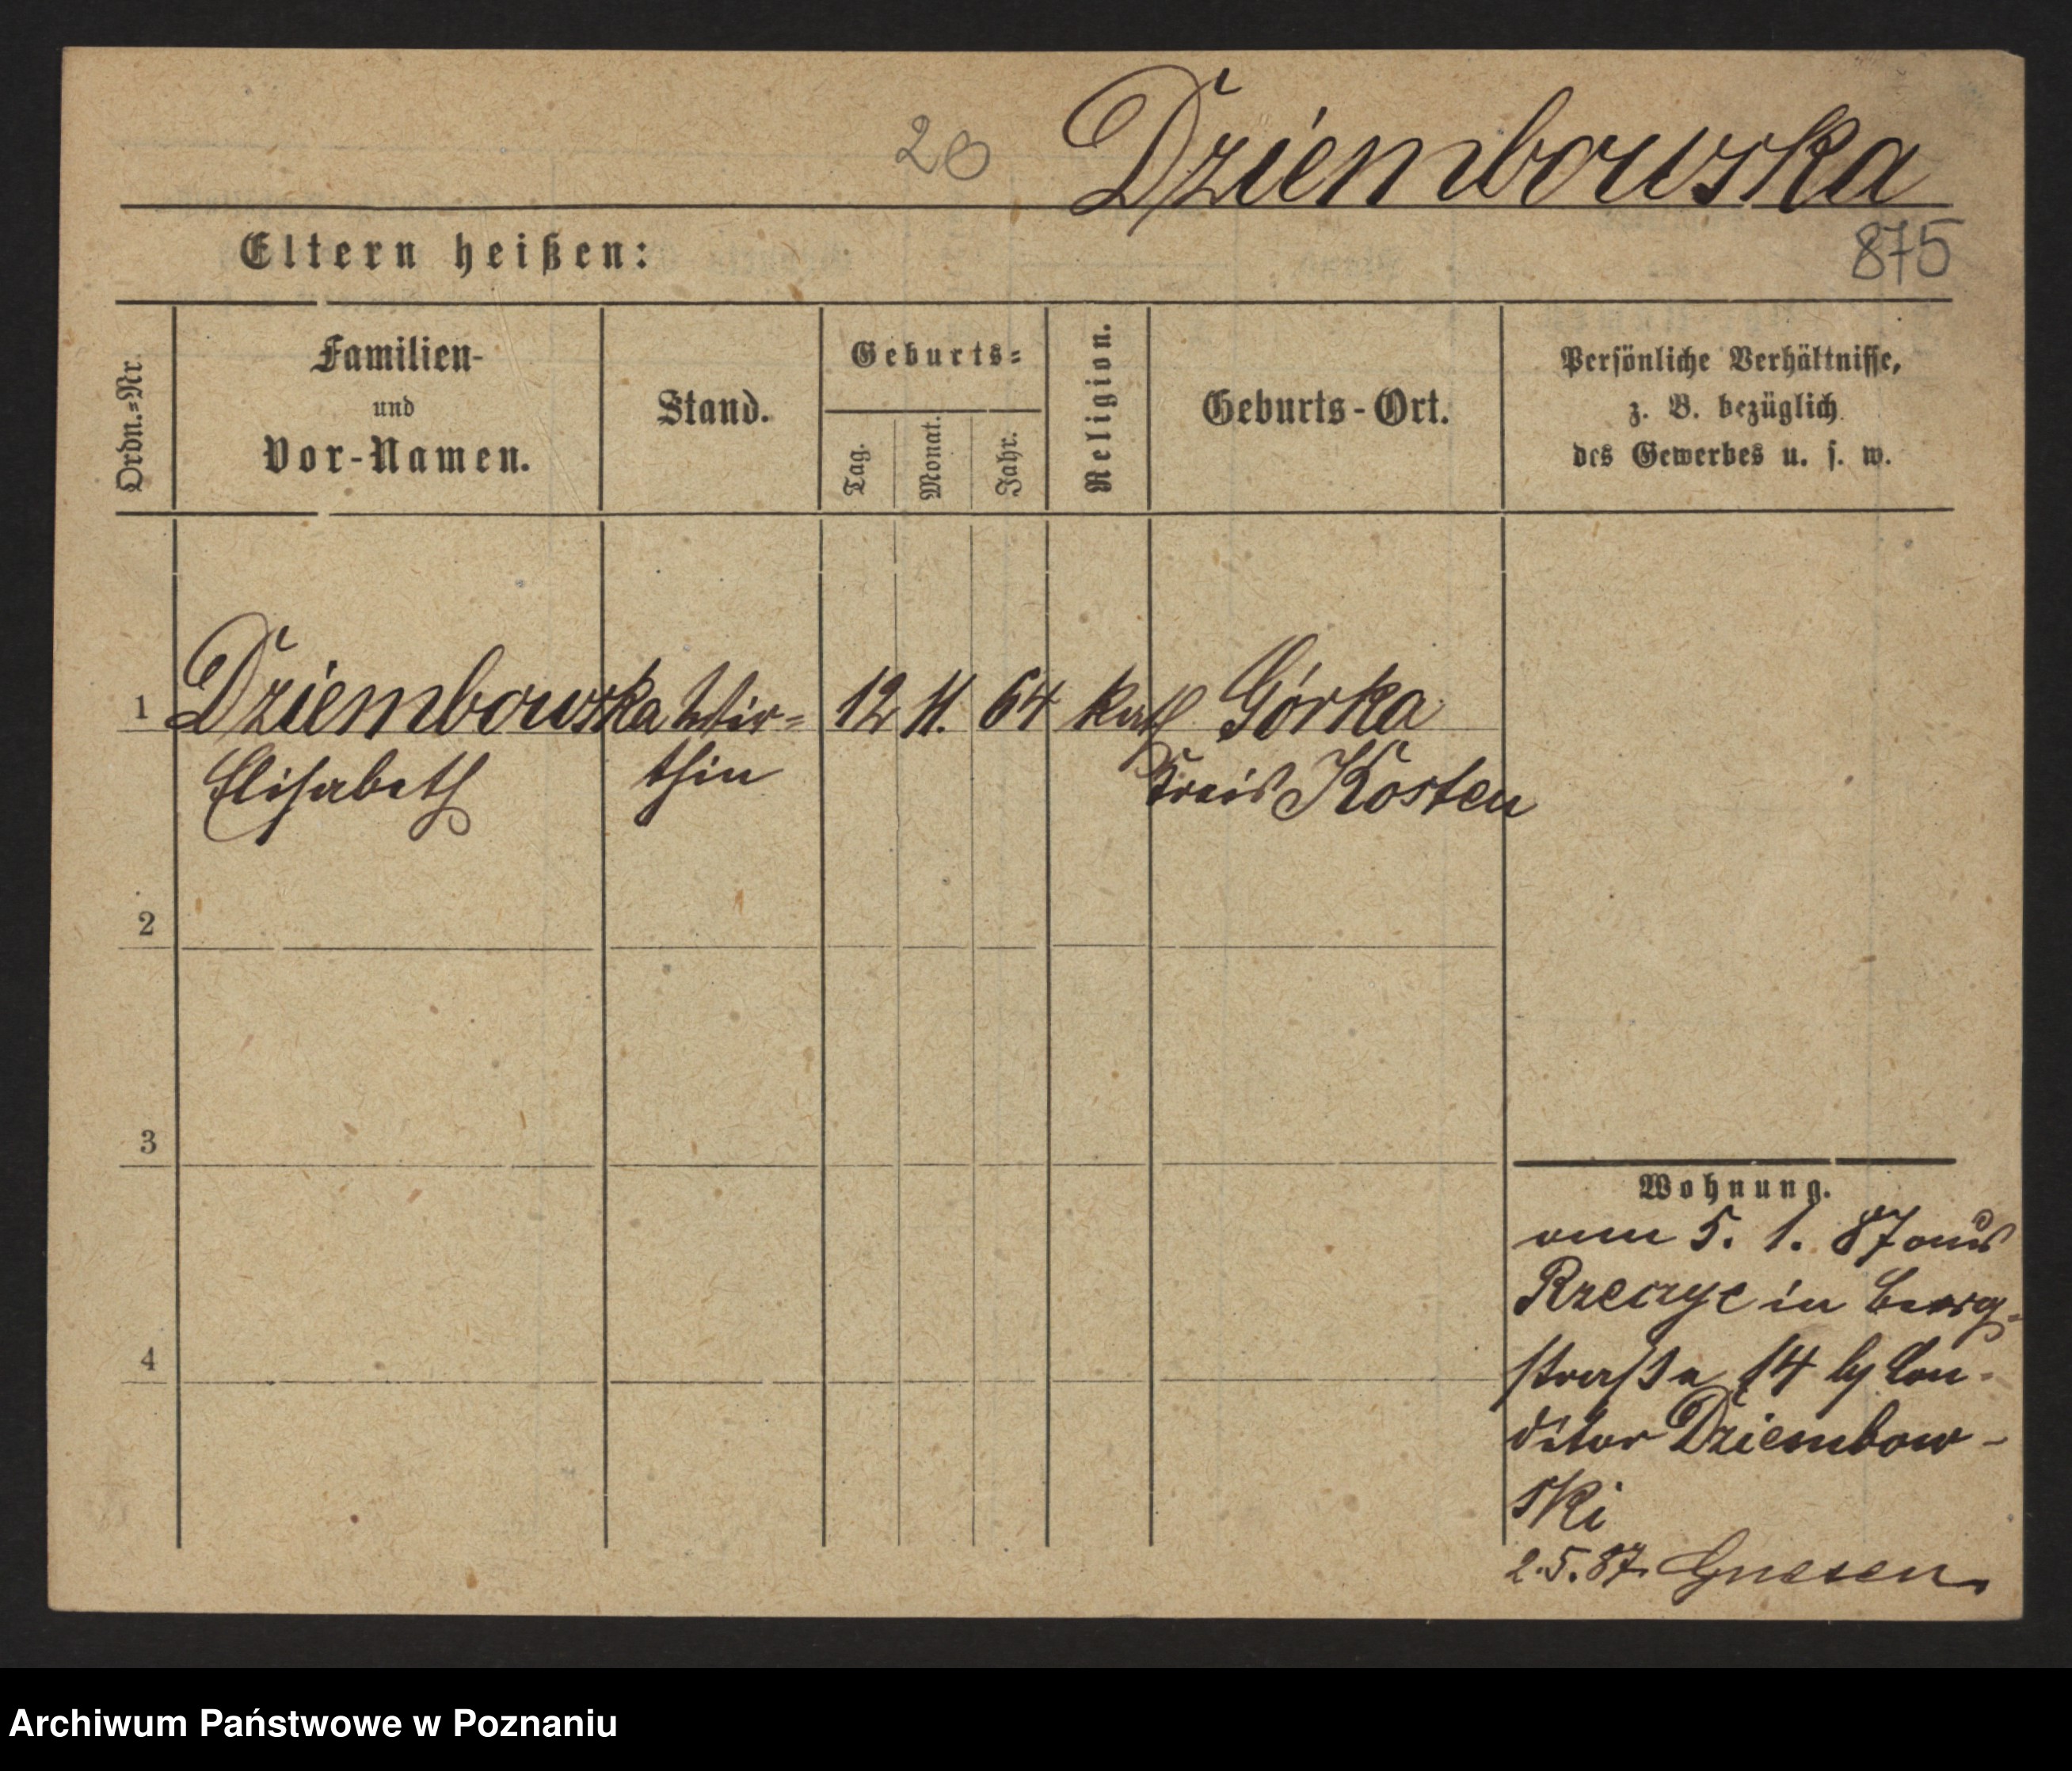 20 Dziembowska
875
Eltern heißen:
Ordn.=Nr.
Familien-
und
Vor-Namen.
Stand.
Geburts=
Tag.
Monat.
Jahr.
Religion.
Geburts-Ort.
Persönliche Verhältnisse,
z. B. bezüglich
des Gewerbes u. s. w.
1 Dziembowska Wir= 12 11. 64 kath Górka
Elisabeth thin Kreis Kosten
2
3
4
Wohnung.
5. 1. 87 aus
in Berg=
straße 14 Con-
ditor Dziembow-
ski
2.5.87. Gnesen.
Archiwum Państwowe w Poznaniu